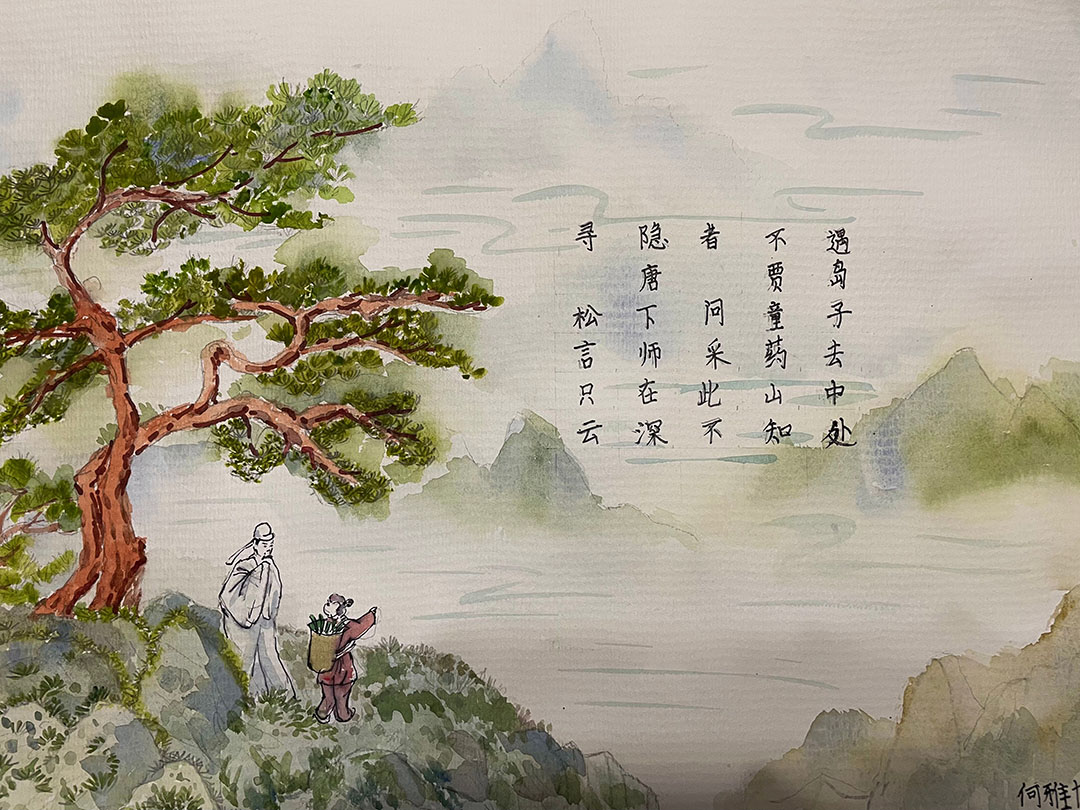 寻隐者不遇
唐 贾岛
松下问童子
言师采药去
只在此山中
云深不知处
何雅